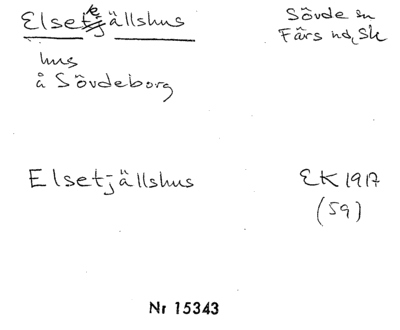 Elsekjällshus
Sövde sn
Färs hd, Sk
hus
å Sövdeborg
Elsetjällshus
EK 1917
(59)
Nr 15343